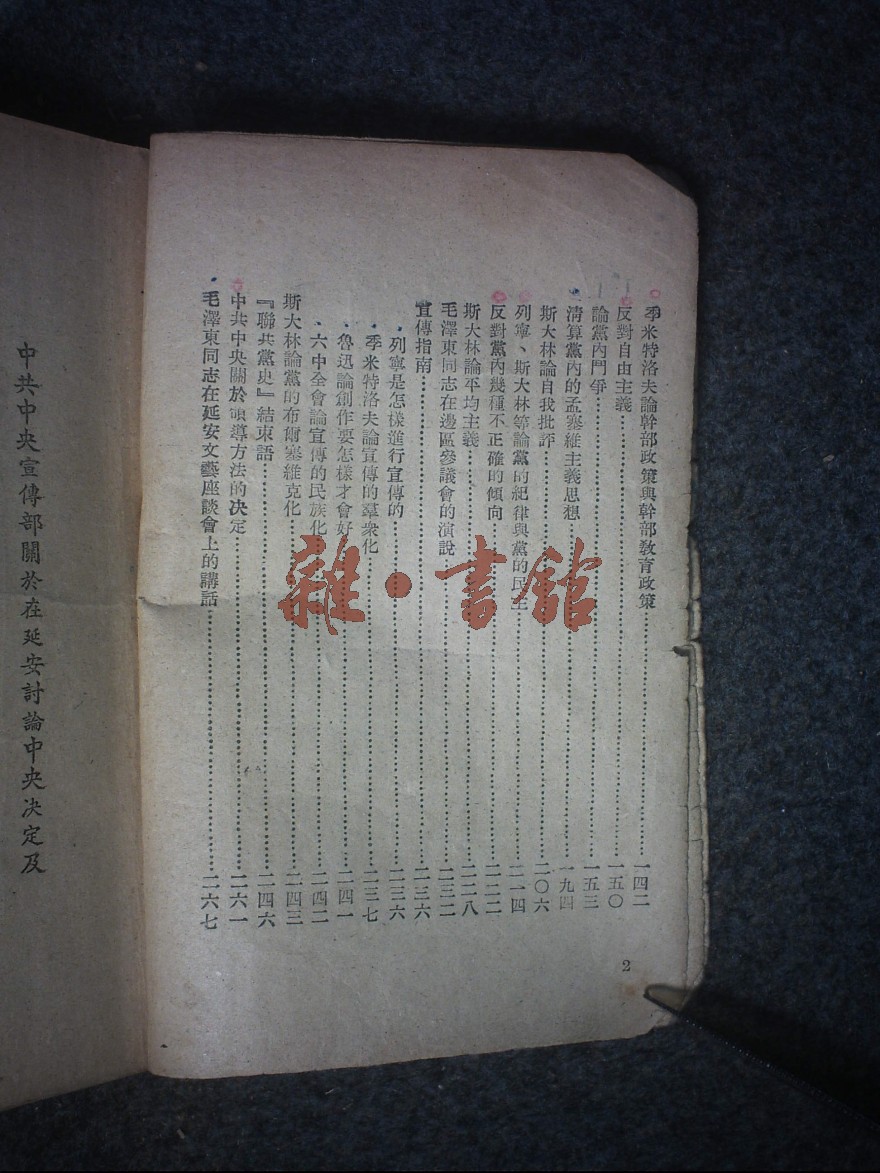 季米特洛夫論幹部政策與幹部敎育政策……一四二
反對自由主義……一五〇
論黨內鬥爭……一五三
清算黨內的孟塞維主義思想……一九四
斯大林論自我批評……二〇六
列寧、斯大林等論黨的紀律與黨的民主……二一四
反對黨內幾種不正確的傾向……二二二
斯大林論平均主義……二二八
毛澤東同志在邊區參議會的演說……二三二
宣傳指南……二三六
列寧是怎樣進行宣傳的……二三六
季米特洛夫論宣傳的羣衆化……二三七
魯迅論創作要怎樣才會好……二四一
六中全會論宣傳的民族化……二四二
斯大林論黨的布爾塞維克化……二四三
『聯共黨史』結束語……二四六
中共中央關於領導方法的決定……二六一
毛澤東同志在延安文藝座談會上的講話……二六七
2
中共中央宣傳部關於在延安討論中央決定及
雜·書館